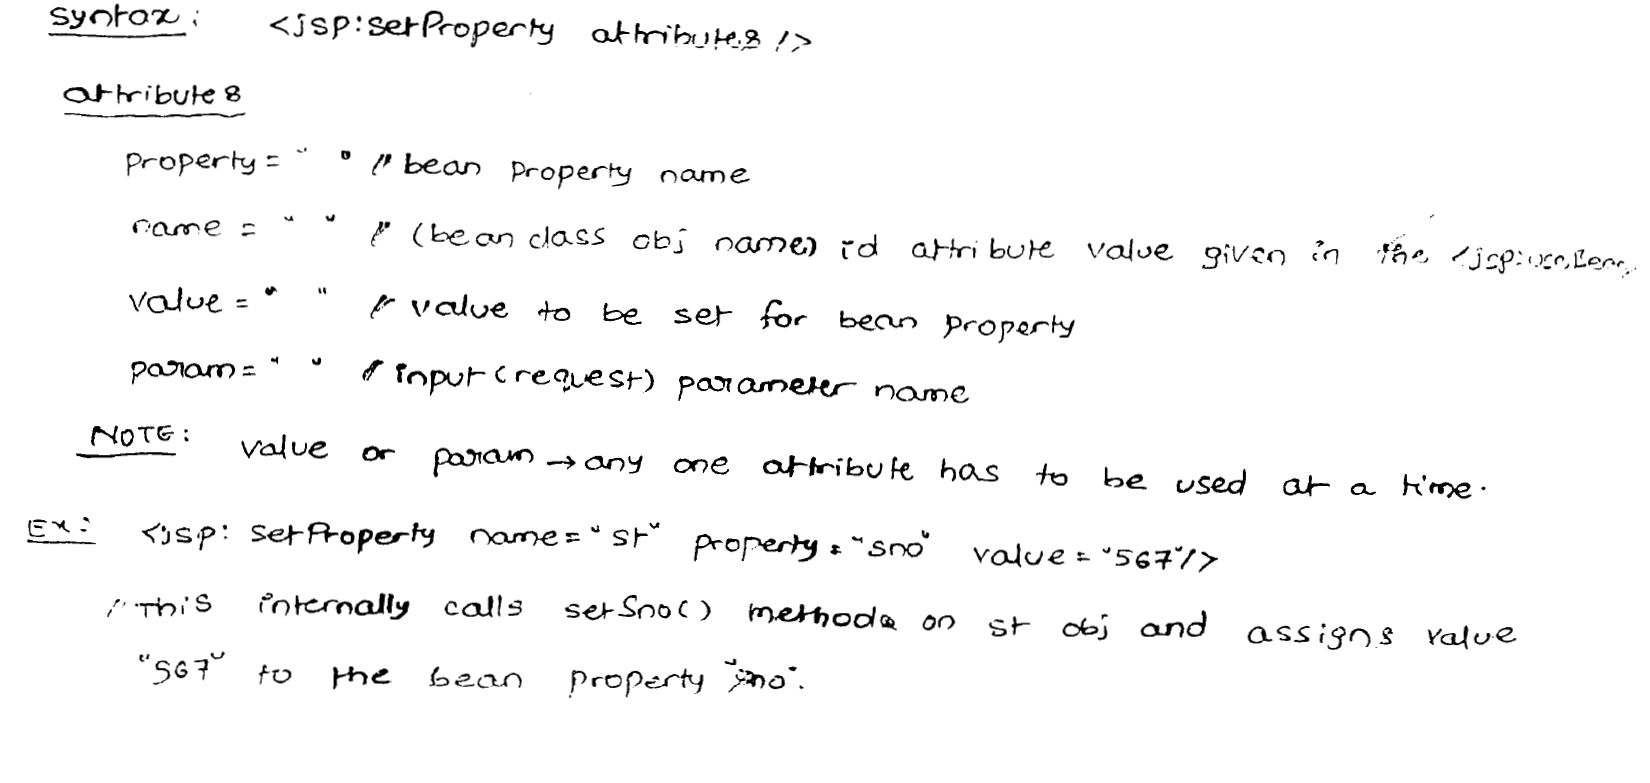 Syntax: <jsp:setProperty attributes />
attributes
property = " " // bean property name
name = " " // (bean class obj name) id attribute value given in the <jsp:useBean>
value = " " // value to be set for bean property
param = " " // input (request) parameter name
NOTE: value or param → any one attribute has to be used at a time.
Ex: <jsp: setProperty name = "st" property = "sno" value = "567"/>
// This internally calls setSno() method on st obj and assigns value
"567" to the bean property "sno".